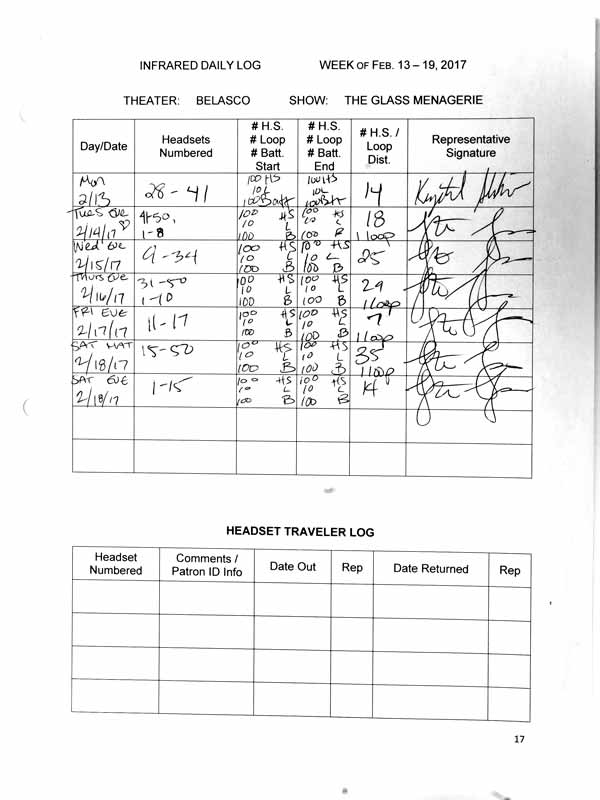 INFRARED DAILY LOG WEEK OF FEB. 13 – 19, 2017
THEATER: BELASCO SHOW: THE GLASS MENAGERIE
Day/Date
Headsets
Numbered
# H.S.
# Loop
# Batt.
Start
# H.S.
# Loop
# Batt.
End
# H.S. /
Loop
Dist.
Representative
Signature
Mon
2/13
28 - 41
100 HS
10 L
100 Batt
100 HS
10L
100 Batt
14
Tues Eve
2/14/17 ♡
1-8
100 HS
10 L
100 B
100 HS
10 L
100 B
18
1 loop
Wed Eve
2/15/17
9 - 34
100 HS
10 L
100 B
100 HS
10 L
100 B
25
Thurs Eve
2/16/17
31-50
1-10
100 HS
10 L
100 B
100 HS
10 L
100 B
29
1 loop
FRI EVE
2/17/17
11 - 17
100 HS
10 L
100 B
100 HS
10 L
100 B
7
1 loop
SAT MAT
2/18/17
15-50
100 HS
10 L
100 B
100 HS
10 L
100 B
35
1 loop
SAT EVE
2/18/17
1-15
100 HS
10 L
100 B
100 HS
10 L
100 B
14
HEADSET TRAVELER LOG
Headset
Numbered
Comments /
Patron ID Info
Date Out
Rep
Date Returned
Rep
17